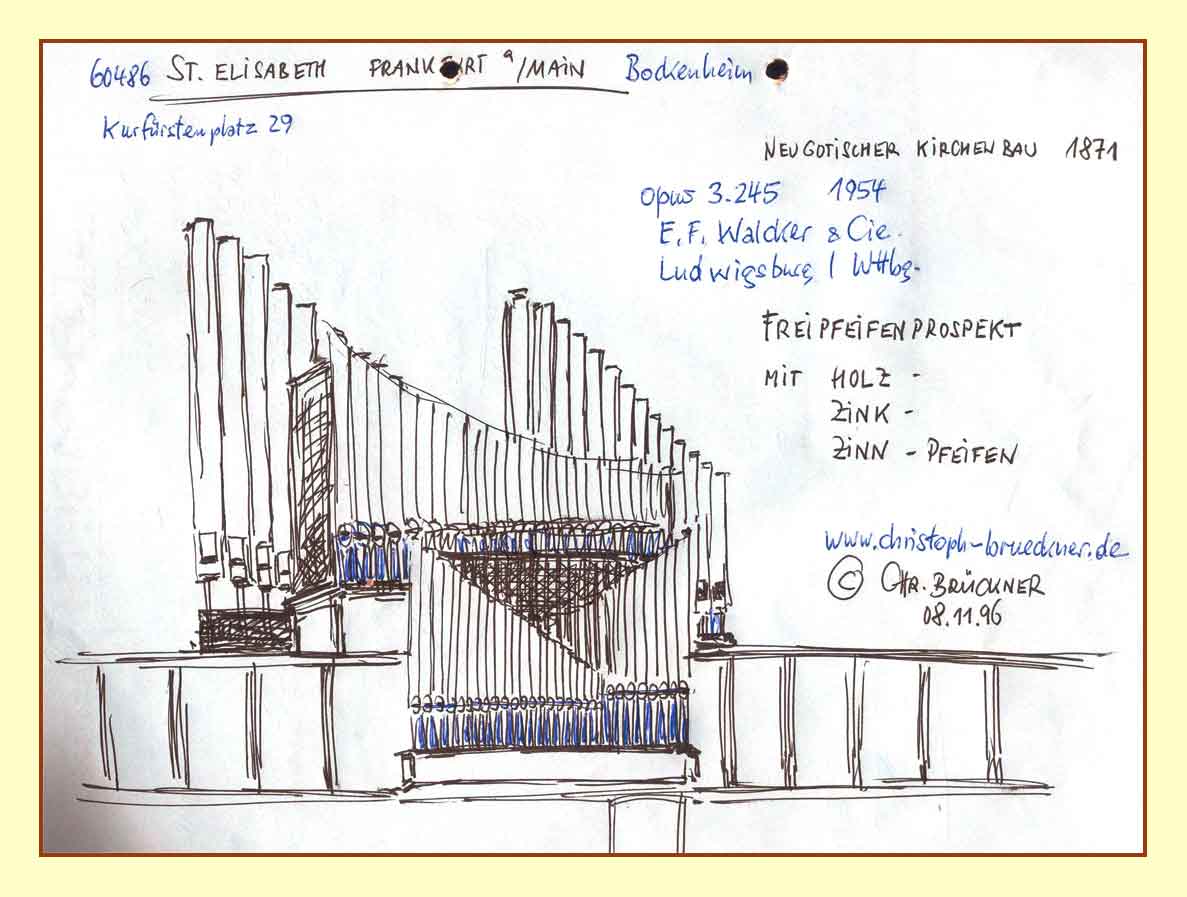 60486 ST. ELISABETH FRANKFURT a/MAIN Bockenheim
Kurfürstenplatz 29
NEUGOTISCHER KIRCHENBAU 1871
Opus 3.245 1954
E. F. Walcker & Cie.
Ludwigsburg / Wttbg.
FREIPFEIFENPROSPEKT
MIT HOLZ -
ZINK -
ZINN - PFEIFEN
www.christoph-brueckner.de
© CHR. BRÜCKNER
08.11.96